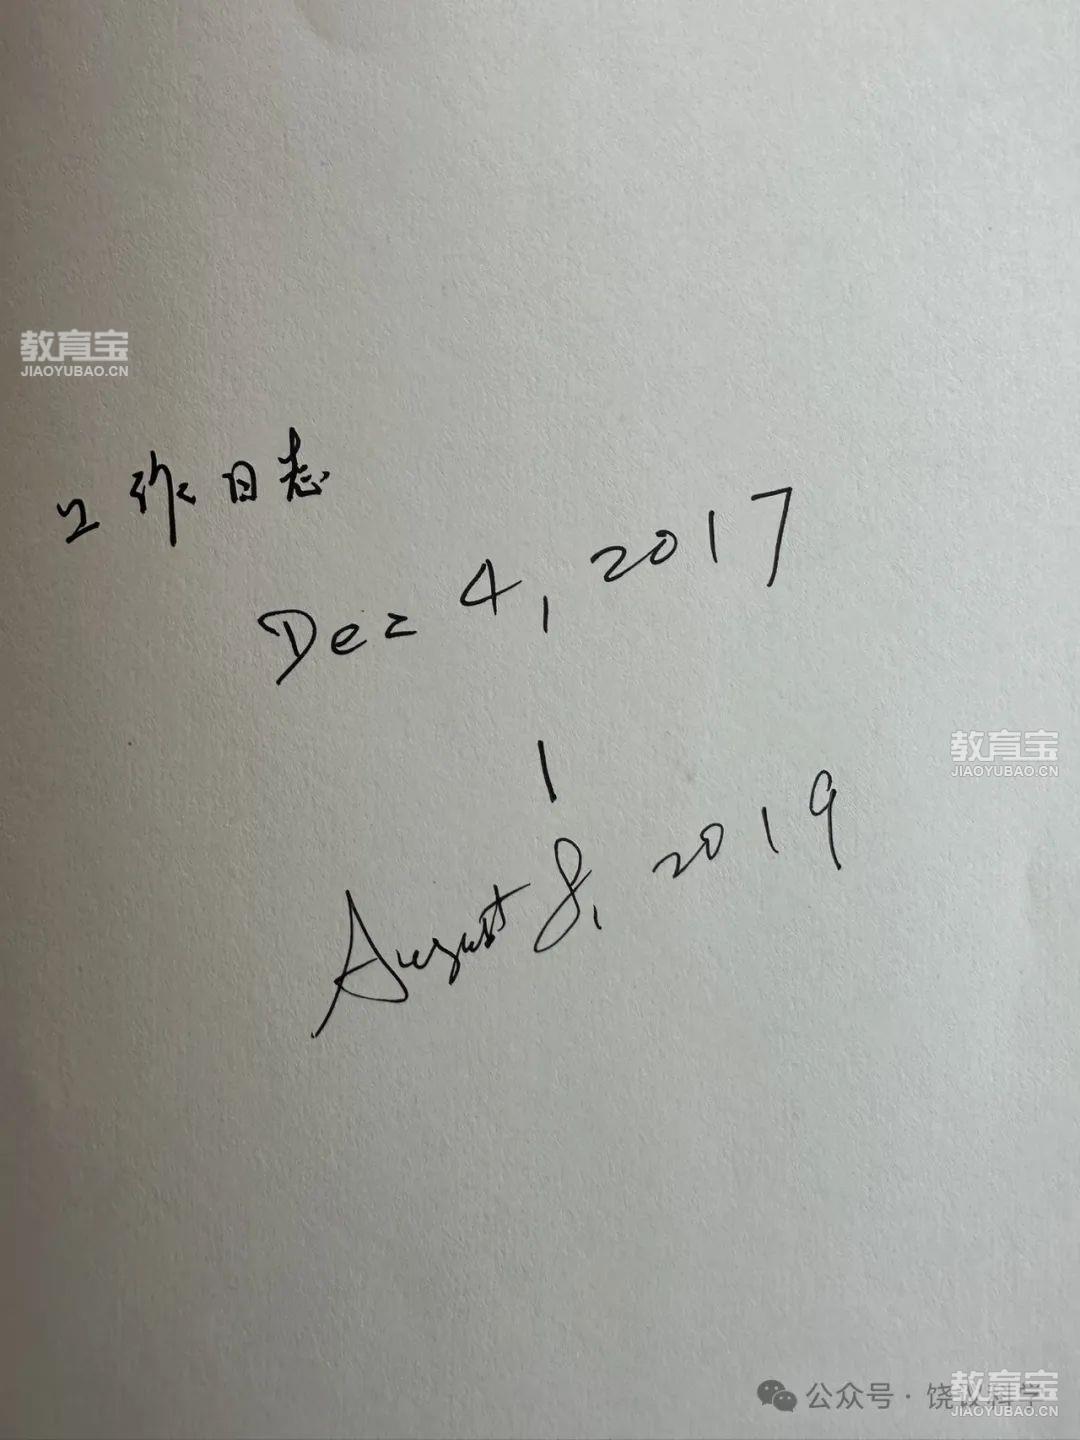 教育宝
JIAOYUBAO.CN
工作日志
Dec 4, 2017
|
August 8, 2019
教育宝
JIAOYUBAO.CN
公众号·饶议科学
教育宝
JIAOYUBAO.CN